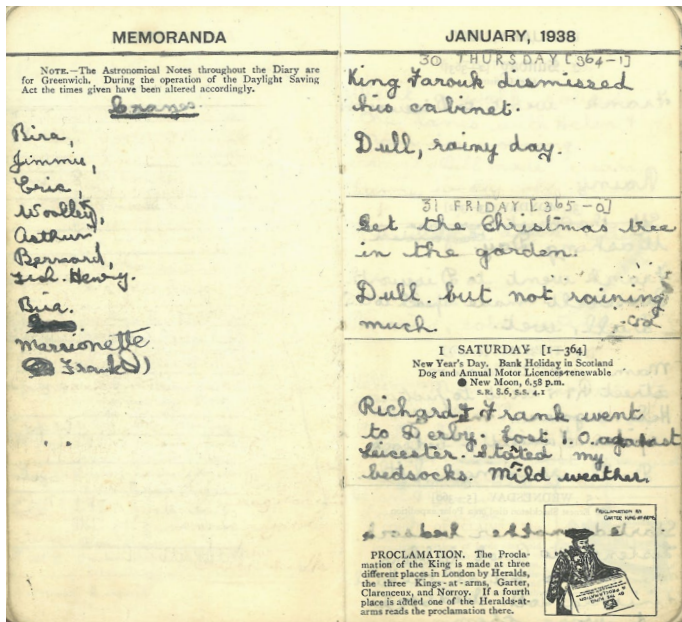 MEMORANDA
NOTE.—The Astronomical Notes throughout the Diary are
for Greenwich. During the operation of the Daylight Saving
Act the times given have been altered accordingly.
Cranes.
Bira,
Jimmie,
Eric,
Woolley,
Arthur,
Bernard,
Henry.
Bira.
Marrionette
Frank
JANUARY, 1938
30 THURSDAY [364-1]
King Farouk dismissed
his cabinet.
Dull, rainy day.
31 FRIDAY [365-0]
Set the Christmas tree
in the garden.
Dull. but not raining
much. cold
1 SATURDAY [1—364]
New Year's Day. Bank Holiday in Scotland
Dog and Annual Motor Licences renewable
● New Moon, 6.58 p.m.
S.R. 8.6, S.S. 4.1
Richard & Frank went
to Derby. Lost 1.0. against
Leicester. Stated my
bedsocks. Mild weather.
PROCLAMATION BY
GARTER KING-AT-ARMS.
BY THE KING
A PROCLAMATION
PROCLAMATION. The Procla-
mation of the King is made at three
different places in London by Heralds,
the three Kings-at-arms, Garter,
Clarenceux, and Norroy. If a fourth
place is added one of the Heralds-at-
arms reads the proclamation there.